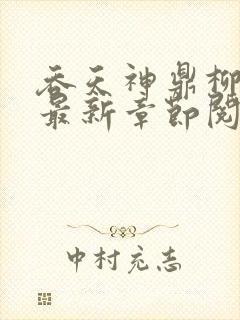 吞天神鼎柳
最新章節閱
中村充志